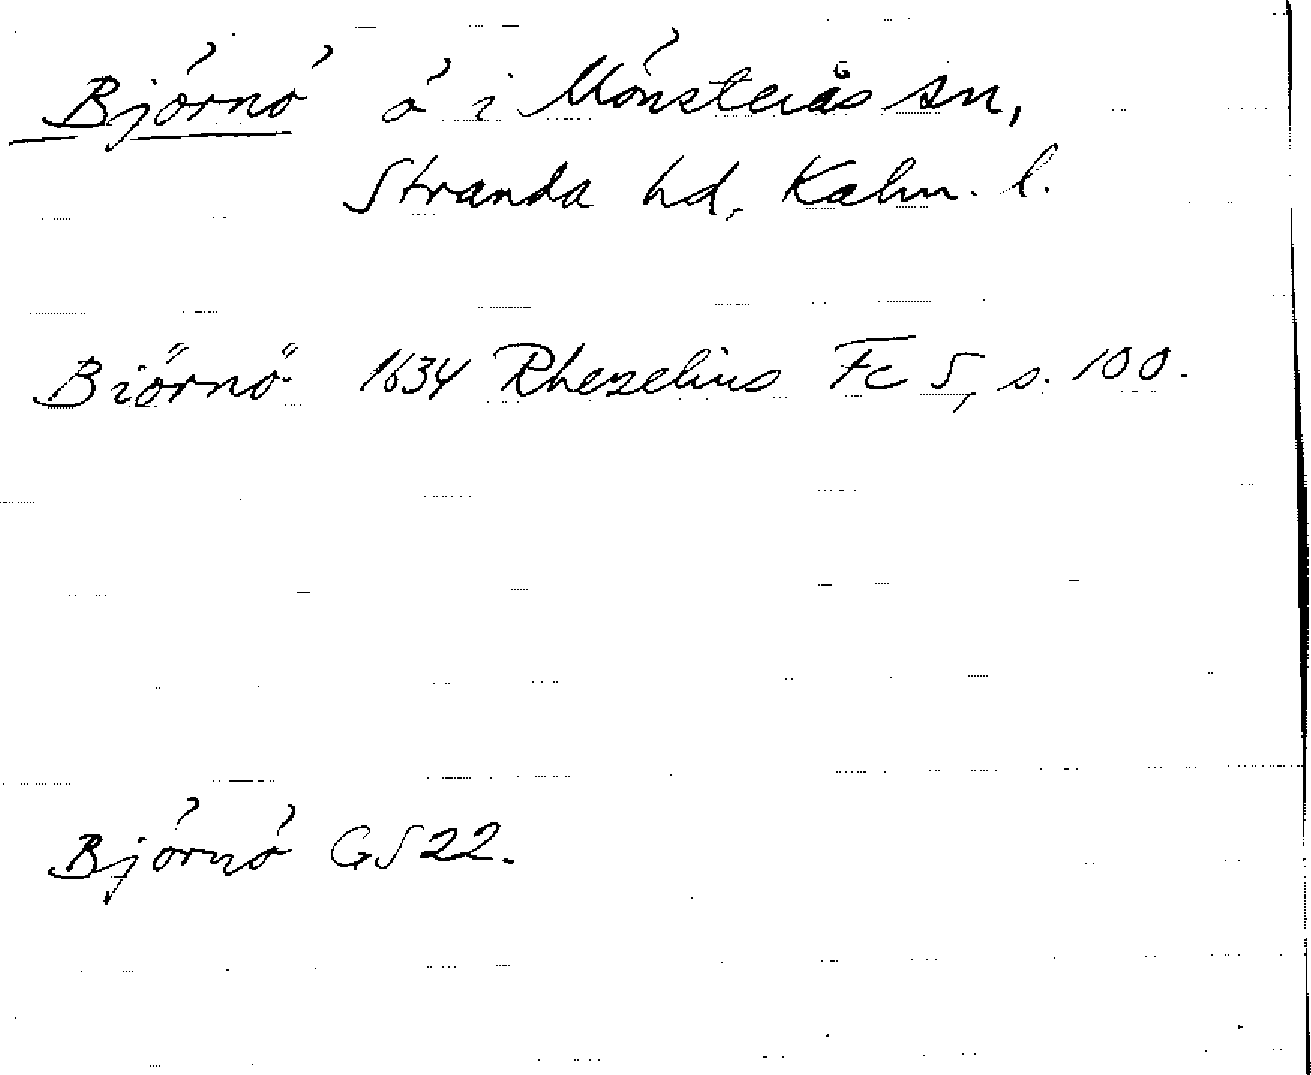 Björnö ö i Mönsterås sn,
Stranda hd, Kalm. l.
Biörnö 1634 Rhezelius Fc 5, s. 100.
Björnö GS 22.